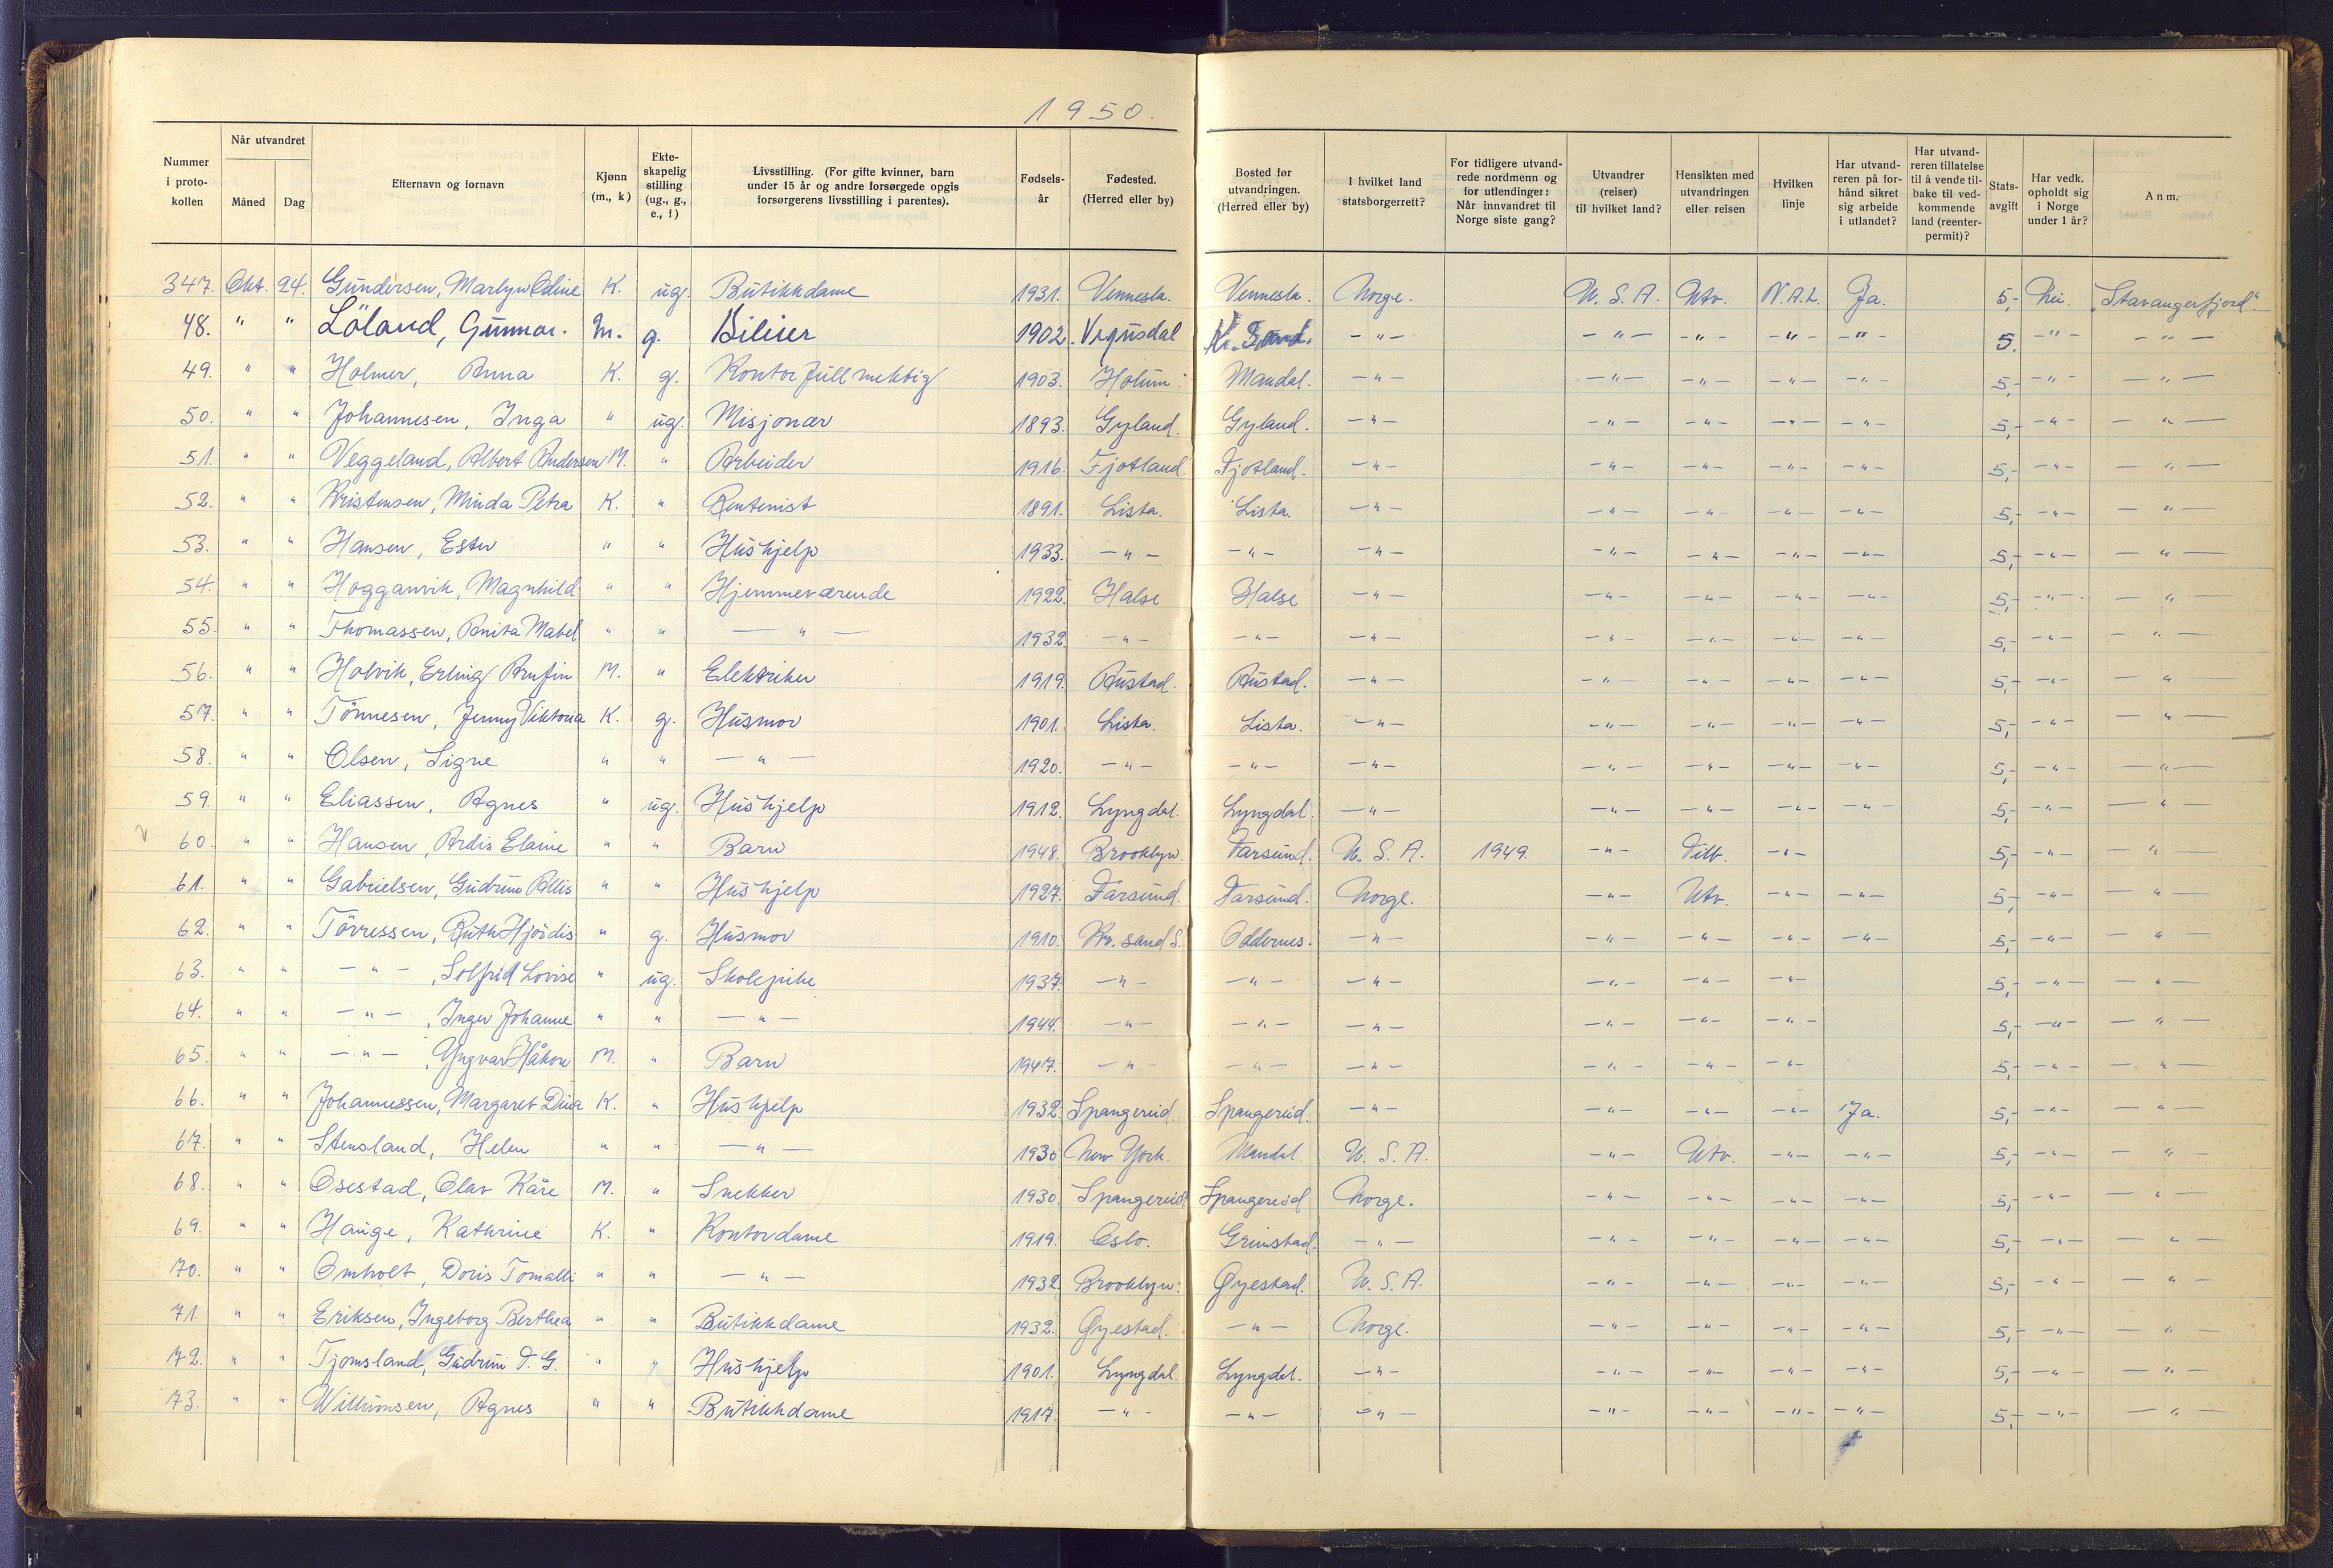 1950.
Nummer i proto-kollen | Når utvandret Måned | Dag | Efternavn og fornavn | Kjønn (m., k) | Ekte-skapelig stilling (ug., g., e., f) | Livsstilling. (For gifte kvinner, barn under 15 år og andre forsørgede opgis forsørgerens livsstilling i parentes). | Fødsels-år | Fødested. (Herred eller by) | Bosted før utvandringen. (Herred eller by) | I hvilket land statsborgerrett? | For tidligere utvand-rede nordmenn og for utlendinger: Når innvandret til Norge siste gang? | Utvandrer (reiser) til hvilket land? | Hensikten med utvandringen eller reisen | Hvilken linje | Har utvand-reren på for-hånd sikret sig arbeide i utlandet? | Har utvand-reren tillatelse til å vende til-bake til ved-kommende land (reenter-permit)? | Stats-avgift | Har vedk. opholdt sig i Norge under 1 år? | Anm.
347. Okt. 24. Gundersen, Marlyn Odine K. ug. Butikkdame 1931. Vennesla. Vennesla. Norge. U.S.A. Utv. N.A.L. Ja. 5,- Nei. "Stavangerfjord".
48. " " Löland, Gunnar. M. g. Bileier 1902. Vegusdal Kr. Sand. -"- -"- -"- -"- -"- 5. -"- -"-
49. " " Holmer, Anna K. g. Kontorfullmektig 1903. Holum. Mandal. -"- -"- -"- -"- -"- 5,- -"- -"-
50. " " Johannesen, Inga " ug. Misjonær 1893. Gyland. Gyland. -"- -"- -"- -"- -"- 5,- -"- -"-
51. " " Veggeland, Albert Andersen M. " Arbeider 1916. Fjotland. Fjotland. -"- -"- -"- -"- -"- 5,- -"- -"-
52. " " Kristensen, Minda Petra K. " Rentenist 1891. Lista. Lista. -"- -"- -"- -"- -"- 5,- -"- -"-
53. " " Hansen, Ester " " Hushjelp 1933. -"- -"- -"- -"- -"- -"- -"- 5,- -"- -"-
54. " " Hogganvik, Magnhild " " Hjemmeværende 1922. Halse Halse -"- -"- -"- -"- -"- 5,- -"- -"-
55. " " Thomassen, Anita Mabel " " -"- 1932. -"- -"- -"- -"- -"- -"- -"- 5,- -"- -"-
56. " " Holvik, Erling Arnfin M. " Elektriker 1919. Austad. Austad. -"- -"- -"- -"- -"- 5,- -"- -"-
57. " " Tönnesen, Jenny Viktoria K. g. Husmor 1901. Lista. Lista. -"- -"- -"- -"- -"- 5,- -"- -"-
58. " " Olsen, Signe " " -"- 1920. -"- -"- -"- -"- -"- -"- -"- 5,- -"- -"-
59. " " Eliassen, Agnes " ug. Hushjelp 1912. Lyngdal. Lyngdal. -"- -"- -"- -"- -"- 5,- -"- -"-
60. " " Hansen, Ardis Elaine " " Barn 1948. Brooklyn. Farsund. U.S.A. 1949. -"- Tilb. -"- 5,- -"- -"-
61. " " Gabrielsen, Gudrun Allis " " Hushjelp 1927. Farsund. Farsund. Norge. -"- Utv. -"- -"- 5,- -"- -"-
62. " " Törressen, Ruth Hjördis " g. Husmor 1910. Kr.sand S. Oddernes. -"- -"- -"- -"- -"- 5,- -"- -"-
63. " " -"- , Solfrid Lovise " ug. Skolepike 1937. -"- -"- -"- -"- -"- -"- 5,- -"- -"-
64. " " -"- , Inger Johanne " " -"- 1944. -"- -"- -"- -"- -"- -"- 5,- -"- -"-
65. " " -"- , Yngvar Håkon M. " Barn 1947. -"- -"- -"- -"- -"- -"- 5,- -"- -"-
66. " " Johannessen, Margaret Dina K. " Hushjelp 1932. Spangereid. Spangereid. -"- -"- -"- -"- Ja. 5,- -"- -"-
67. " " Stensland, Helen " " -"- 1930 New York. Mandal. U.S.A. -"- Utv. -"- -"- 5,- -"- -"-
68. " " Osestad, Olav Kåre M. " Snekker 1930. Spangereid Spangereid Norge. -"- -"- -"- -"- 5,- -"- -"-
69. " " Hauge, Kathrine K. " Kontordame 1919. Oslo. Grimstad. -"- -"- -"- -"- -"- 5,- -"- -"-
70. " " Omholt, Doris " " -"- 1932. Brooklyn. Øyestad. U.S.A. -"- -"- -"- -"- 5,- -"- -"-
71. " " Eriksen, Ingeborg Berthea " " Butikkdame 1932. Øyestad. -"- Norge. -"- -"- -"- -"- 5,- -"- -"-
72. " " Tjomsland, Gudrun T. G. " " Hushjelp 1901. Lyngdal. Lyngdal. -"- -"- -"- -"- -"- 5,- -"- -"-
73. " " Willumsen, Agnes " " Butikkdame 1917. -"- -"- -"- -"- -"- -"- -"- 5,- -"- -"-